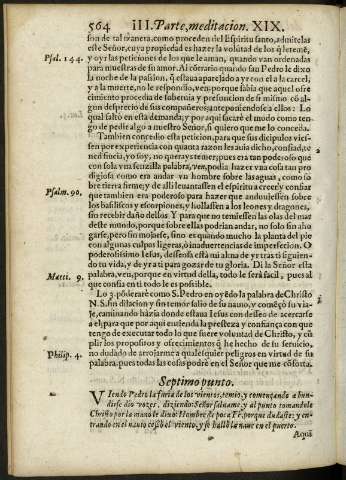 564 III. Parte, meditacion. XIX.
son de tal manera, como proceden del Espiritu santo, admitelas
este Señor, cuya propiedad es hazer la volūtad de los q̃ le temē,
Psal. 144.
y oyr las peticiones de los que le aman, quando van ordenadas
para muestras de su amor. Al contrario quando san Pedro le dixo
la noche de la passion, q̃ estaua aparejado a yr con el a la carcel,
y a la muerte, no le respondio, ven, porque sabia que aquel ofre
cimiento procedia de soberuia y presuncion de si mismo cō al-
gun desprecio de sus compañeros, anteponiendose a ellos: Lo
qual faltò en esta demanda; y por aqui sacarè el modo como ten-
go de pedir algo a nuestro Señor, si quiero que me lo conceda.
Tambien concedio esta peticion, para que sus dicipulos vies-
sen por experiencia con quanta razon les auia dicho, confiad, te
ned fiucia, yo soy, no querays temer; pues era tan poderoso que
con sola vna senzilla palabra, ven, podia hazer vna cosa tan pro
digiosa como era andar vn hombre sobre las aguas, como so
bre tierra firme; y de alli leuantassen el espiritu a creer y confiar
Psalm. 90.
que tambien era poderoso para hazer que anduuiessen sobre
los basiliscos y escorpiones, y hollassen a los leones y dragones,
sin recebir daño dellos. Y para que no temiessen las olas del mar
deste mundo, porque sobre ellas podrian andar, no solo sin aho
garse, pero sin mojarse, sino es quando mucho la planta del pie
con algunas culpas ligeras, ò inaduertencias de imperfecion. O
poderosissimo Iesus, desseosa està mi alma de yr tras ti siguien-
do tu vida, y de yr a ti para gozar de tu gloria. Di la Señor esta
Matti. 9.
palabra, ven, porque en virtud della, todo le serà facil, pues al
que confia en ti todo le es posible.
Lo 3. pōderarè como S. Pedro en oyēdo la palabra de Christo
N. S. sin dilacion y sin temor salio de la nauo, y començò su via-
je, caminando hàzia donde estaua Iesus con desseo de acercarse
a el; para que por aqui entienda la presteza y confiança con que
tengo de executar todo lo que fuere voluntad de Christo, y cū
plir los propositos y ofrecimientos q̃ he hecho de su seruicio,
Philip. 4.
no dudādo de arrojarme a qualesquier peligros en virtud de su
palabra, pues todas las cosas podrè en el Señor que me cōforta.
Septimo punto.
VIendo Pedro la furia de los vientos, temio, y començando a hun-
dirse dio vozes, diziendo: Señor saluame, y al punto tomandole
Christo por la mano le dixo: Hombre de poca Fè, porque dudaste: y en-
trando en el nauio cessò el viento, y se hallò la naue en el puerto.
Aqui